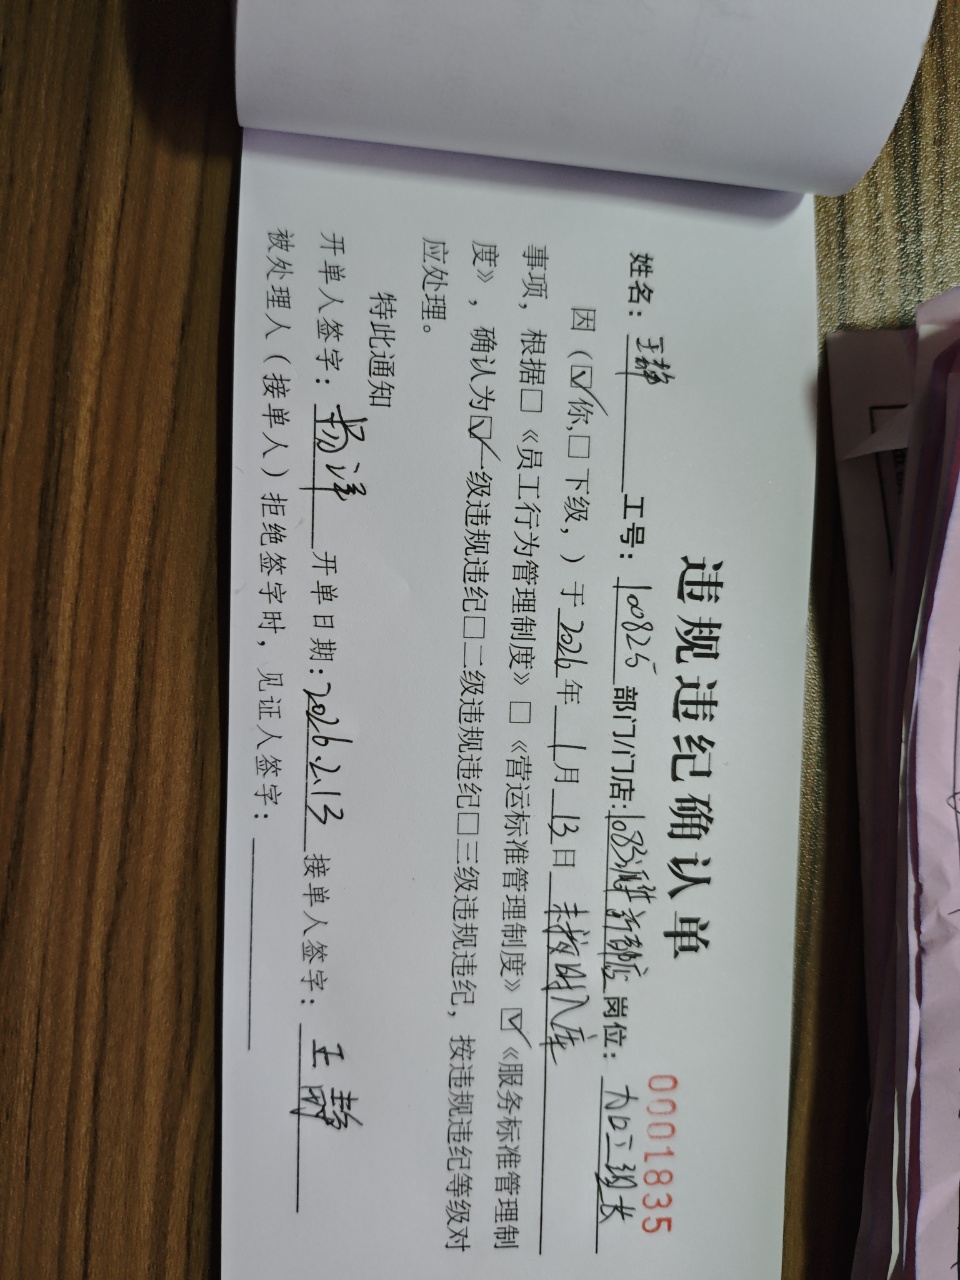 违规违纪确认单
0001835
姓名：王静 工号：100825 部门/门店：1083 新都店 岗位：加工组长
因（☑你，□下级，）于2026年1月13日 未按时入库
事项，根据□《员工行为管理制度》□《营运标准管理制度》☑《服务标准管理制
度》，确认为☑一级违规违纪□二级违规违纪□三级违规违纪，按违规违纪等级对
应处理。
特此通知
开单人签字：杨洋 开单日期：2026.2.13 接单人签字：王静
被处理人（接单人）拒绝签字时，见证人签字：